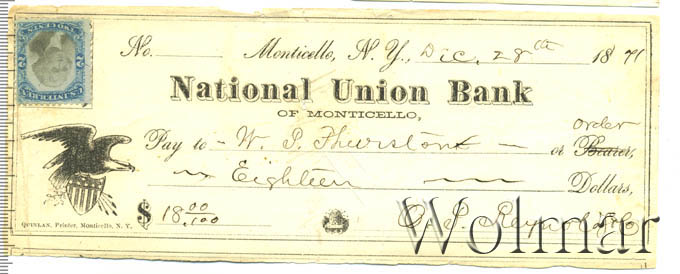 No. Monticello, N. Y., Dec. 28th 1871
National Union Bank
OF MONTICELLO,
order
Pay to W. P. Thurston or Bearer,
Eighteen Dollars,
$ 18 00/100
QUINLAN, Printer, Monticello, N. Y.
Wolmar